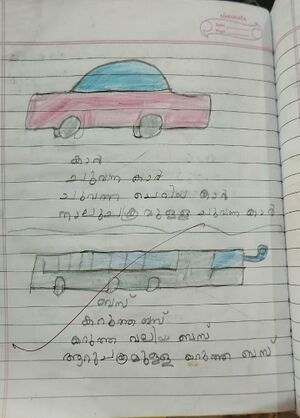 കാർ
ചുവന്ന കാർ
ചുവന്ന ചെറിയ കാർ
നാലുചക്രവുള്ള ചുവന്ന കാർ
ബസ്
കറുത്ത ബസ്
കറുത്ത വലിയ ബസ്
ആറുചക്രമുള്ള കറുത്ത ബസ്